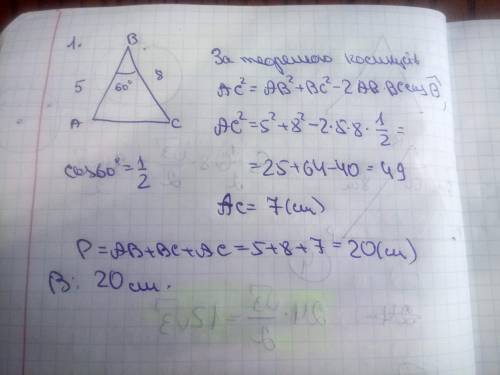 1.
B
5
8
60°
A
C
cos60°=1/2
За теоремою косинусів
AC²=AB²+BC²-2AB·BC cos B̂,
AC²=5²+8²-2·5·8·1/2=
=25+64-40=49
AC=7(см)
P=AB+BC+AC=5+8+7=20(см)
В: 20см.